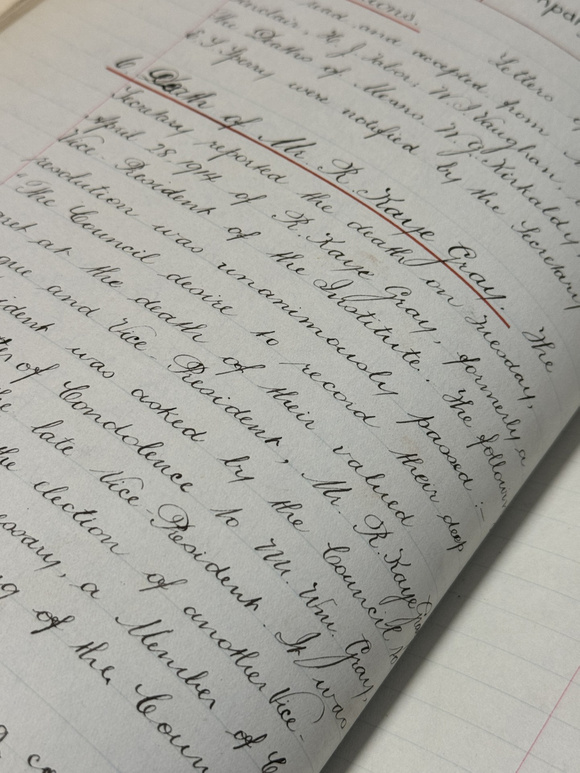 ons.
read and accepted from
Letters
Sinclair, H. J. Tabor, W. S. Vaughan,
The Deaths of Messrs. W. J. Kirkaldy
& T. Spory were notified by the Secretary
6. Death of Mr. R. Kaye Gray. The
Secretary reported the death on Tuesday,
April 28, 1914 of R. Kaye Gray, formerly a
Vice-President of the Institute. The follow
resolution was unanimously passed:-
"The Council desire to record their deep
ret at the death of their valued
gue and Vice-President, Mr. R. Kaye Gray
ident was asked by the Council to
of Condolence to Mr. Wm. Gray,
the late Vice-President. It was
the election of another Vice-
essary, a Member of C
g of the Coun